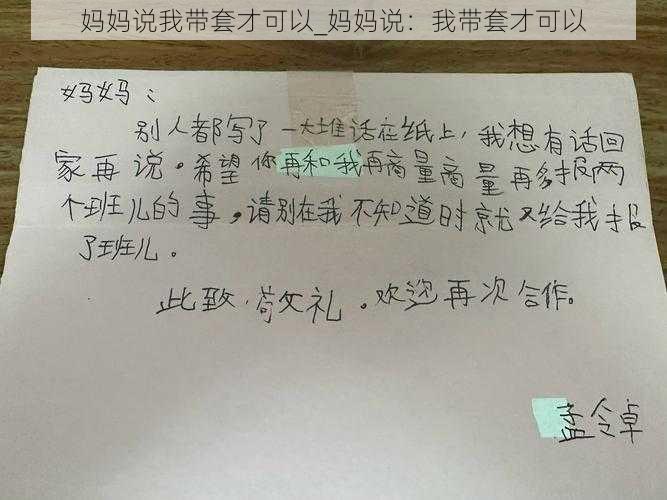 妈妈说我带套才可以_妈妈说：我带套才可以
妈妈：
别人都写了一大堆话在纸上，我想有话回
家再说。希望你再和我再商量商量再多报两
个班儿的事，请别在我不知道时就又给我报
了班儿。
此致，苟文礼。欢迎再次合作。
孟令卓